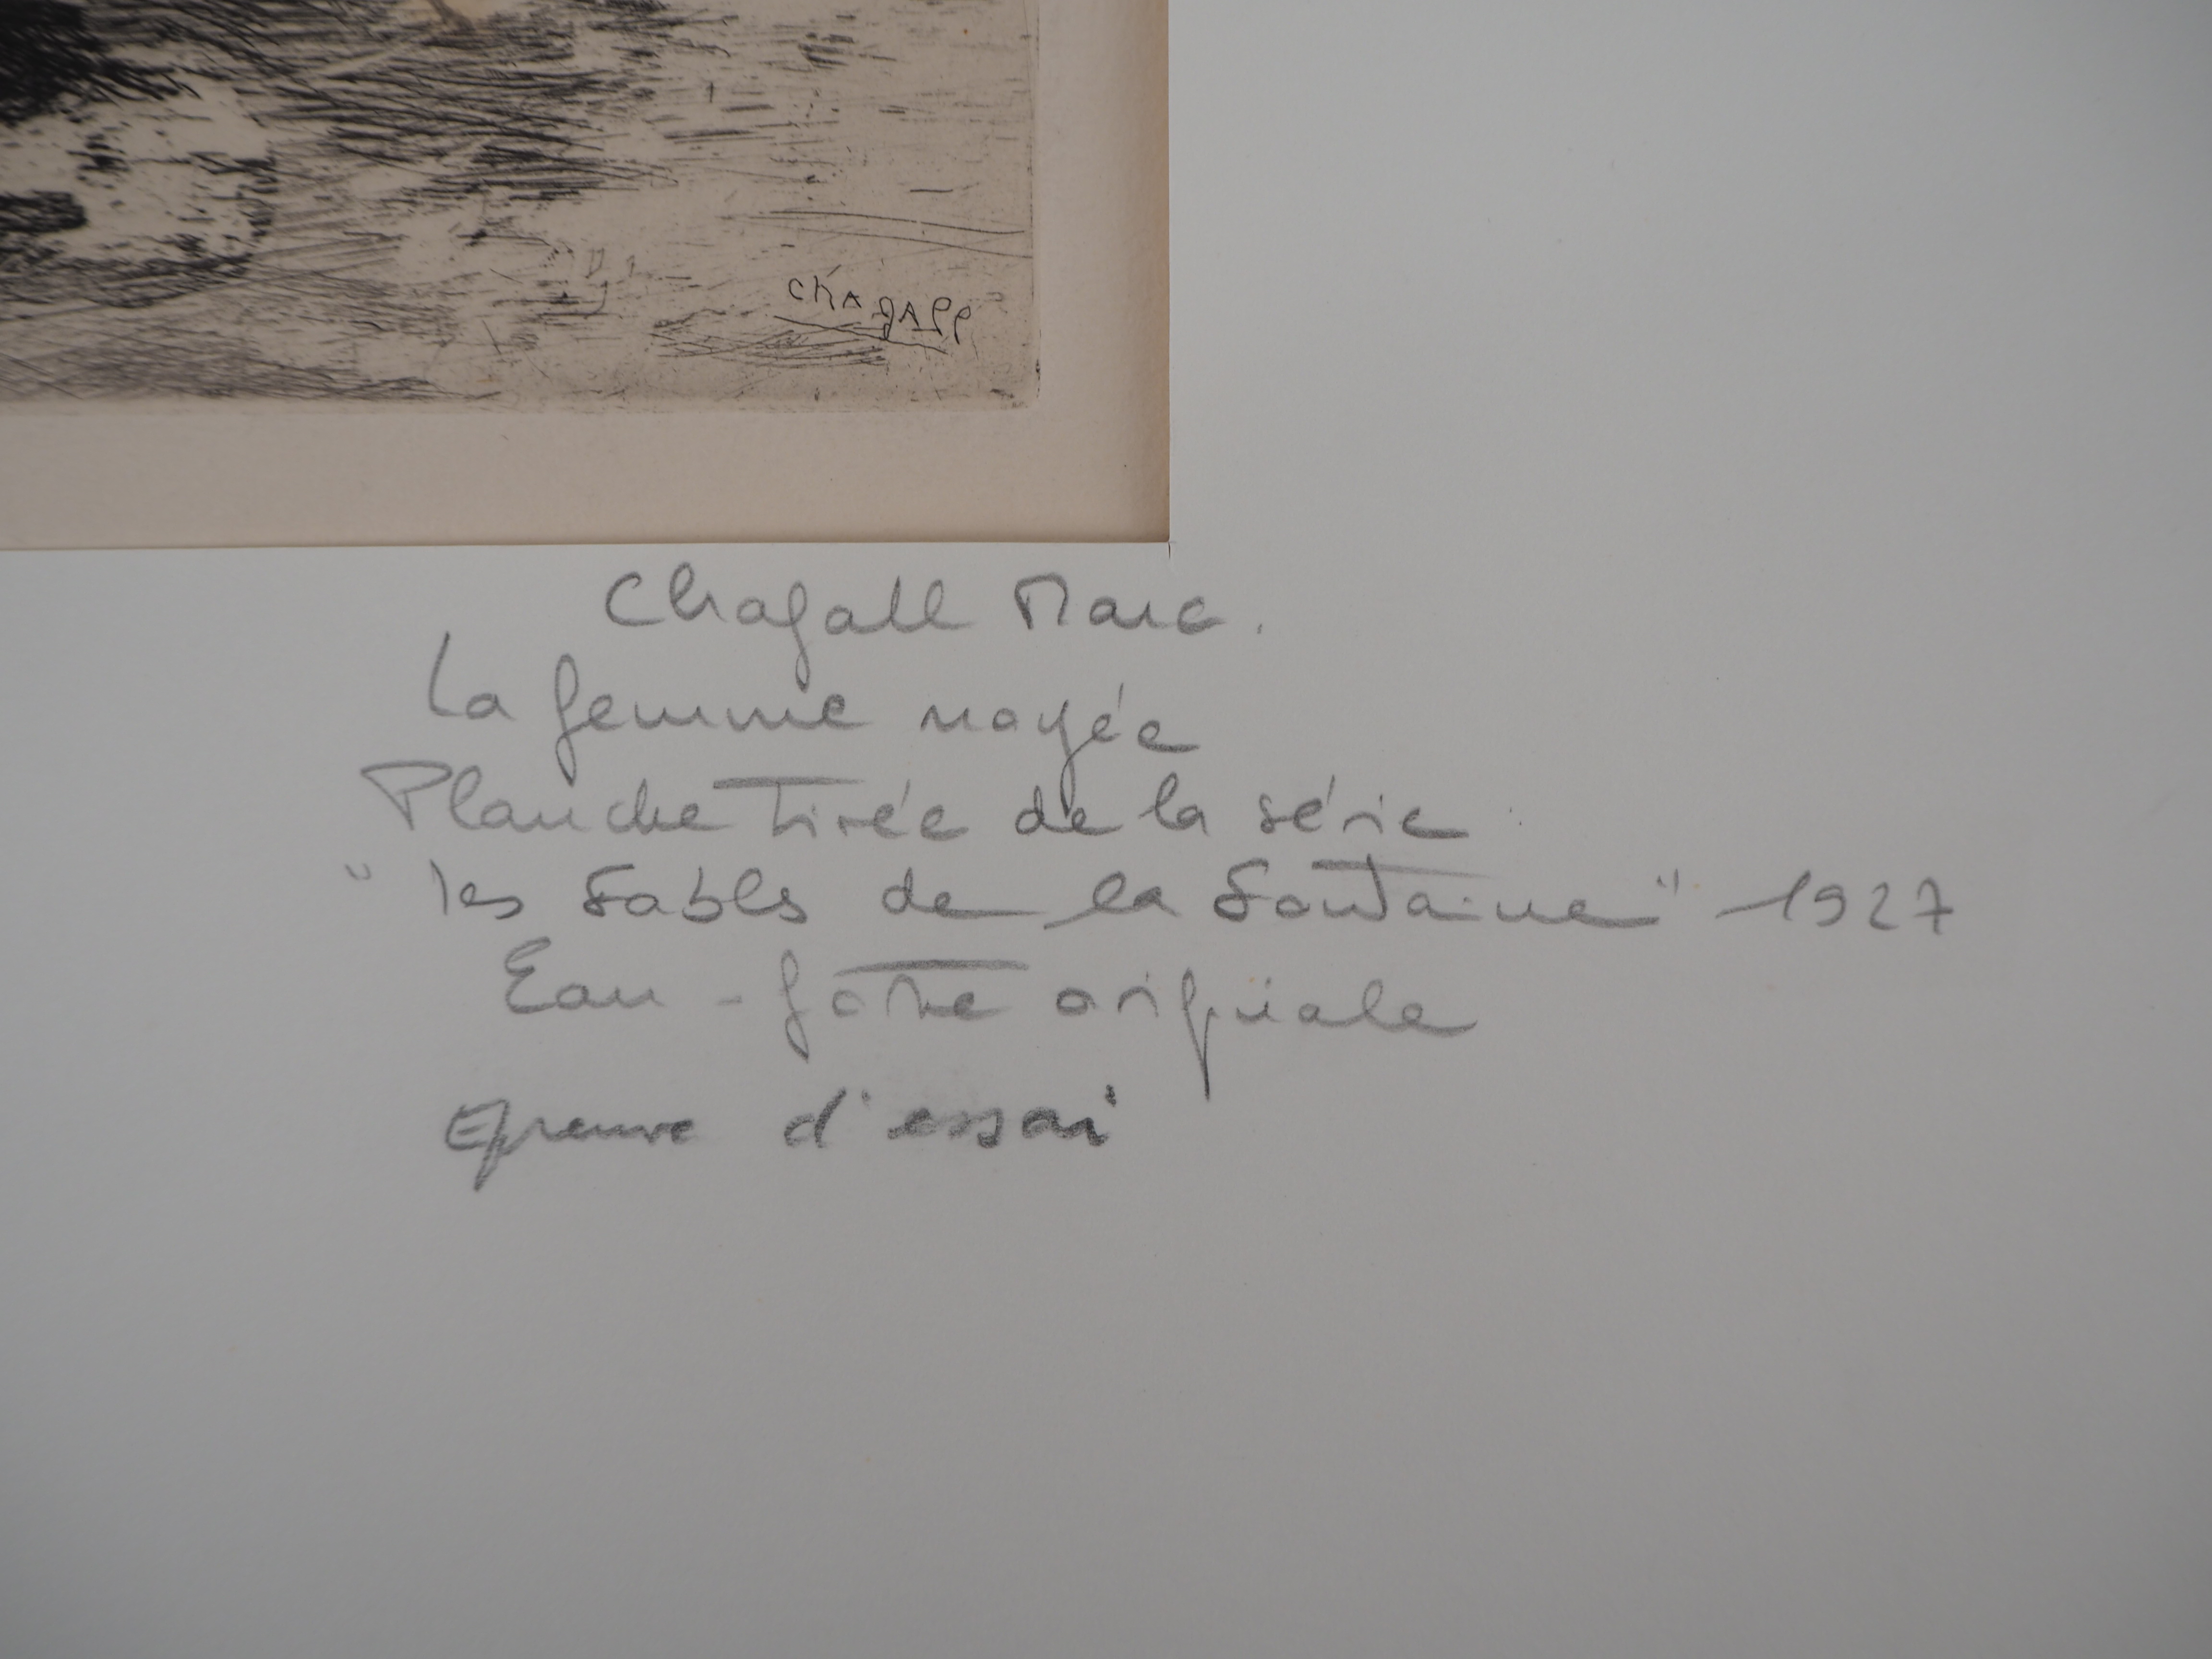 ChAgAll
Chagall Marc.
La femme noyée
Planche tirée de la série
" les Fables de la Fontaine" - 1927
Eau - forte originale
Epreuve d'essai